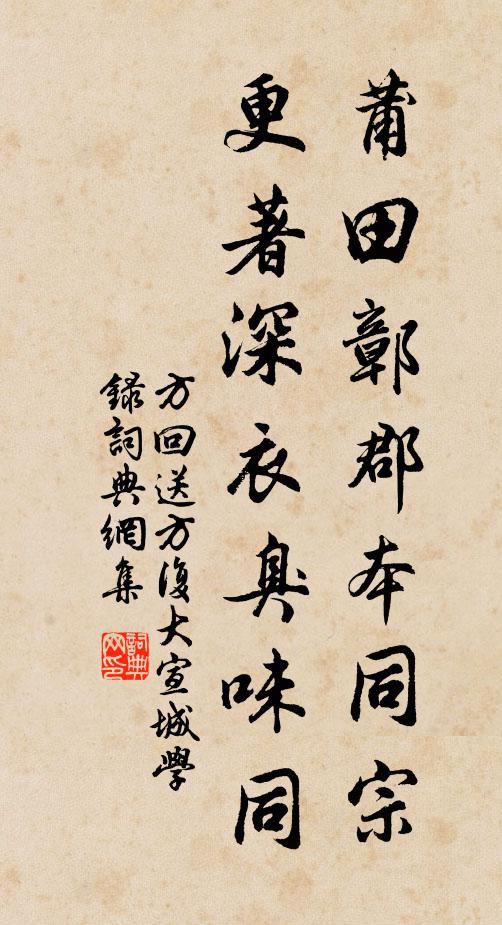 莆田鄣郡本同宗
更著深衣臭味同
方回送方復大宣城學
錄詞典網集
詞典网印